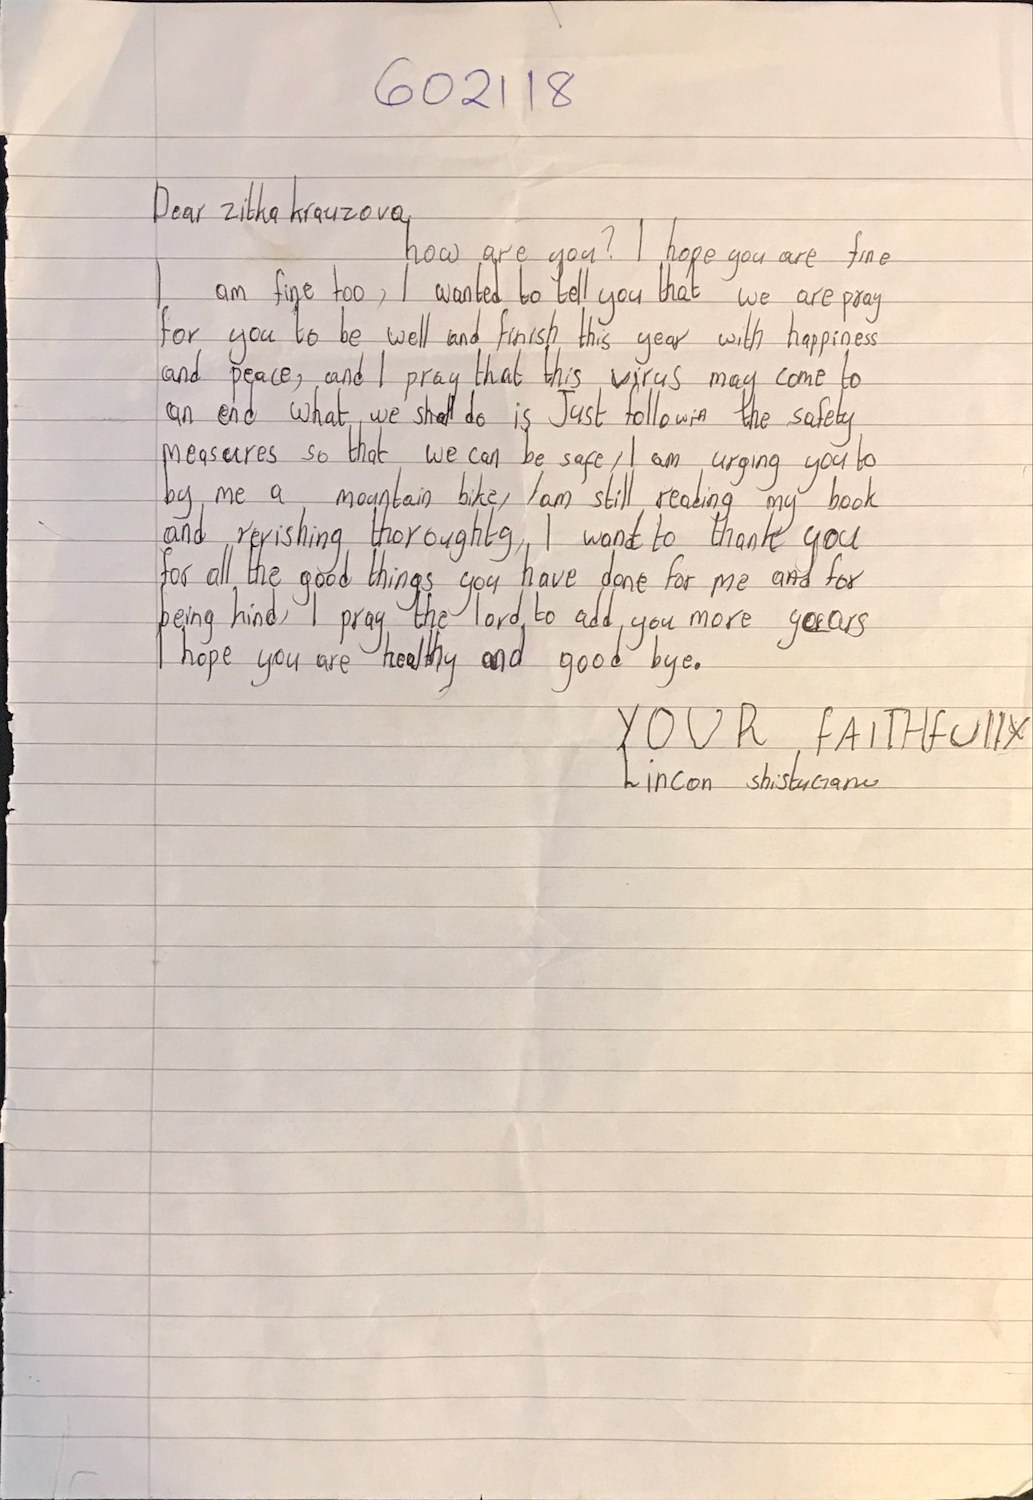 602118
Dear zitka krauzova,
how are you? I hope you are fine
I am fine too, I wanted to tell you that we are pray
for you to be well and finish this year with happiness
and peace, and I pray that this virus may come to
an end what we shall do is Just followin the safety
measures so that we can be safe, I am urging you to
by me a mountain bike, I am still reading my book
and revishing thoroughtg, I want to thank you
for all the good things you have done for me and for
being kind, I pray the lord to add you more years
I hope you are healthy and good bye.
YOUR FAITHFULLY
Lincon